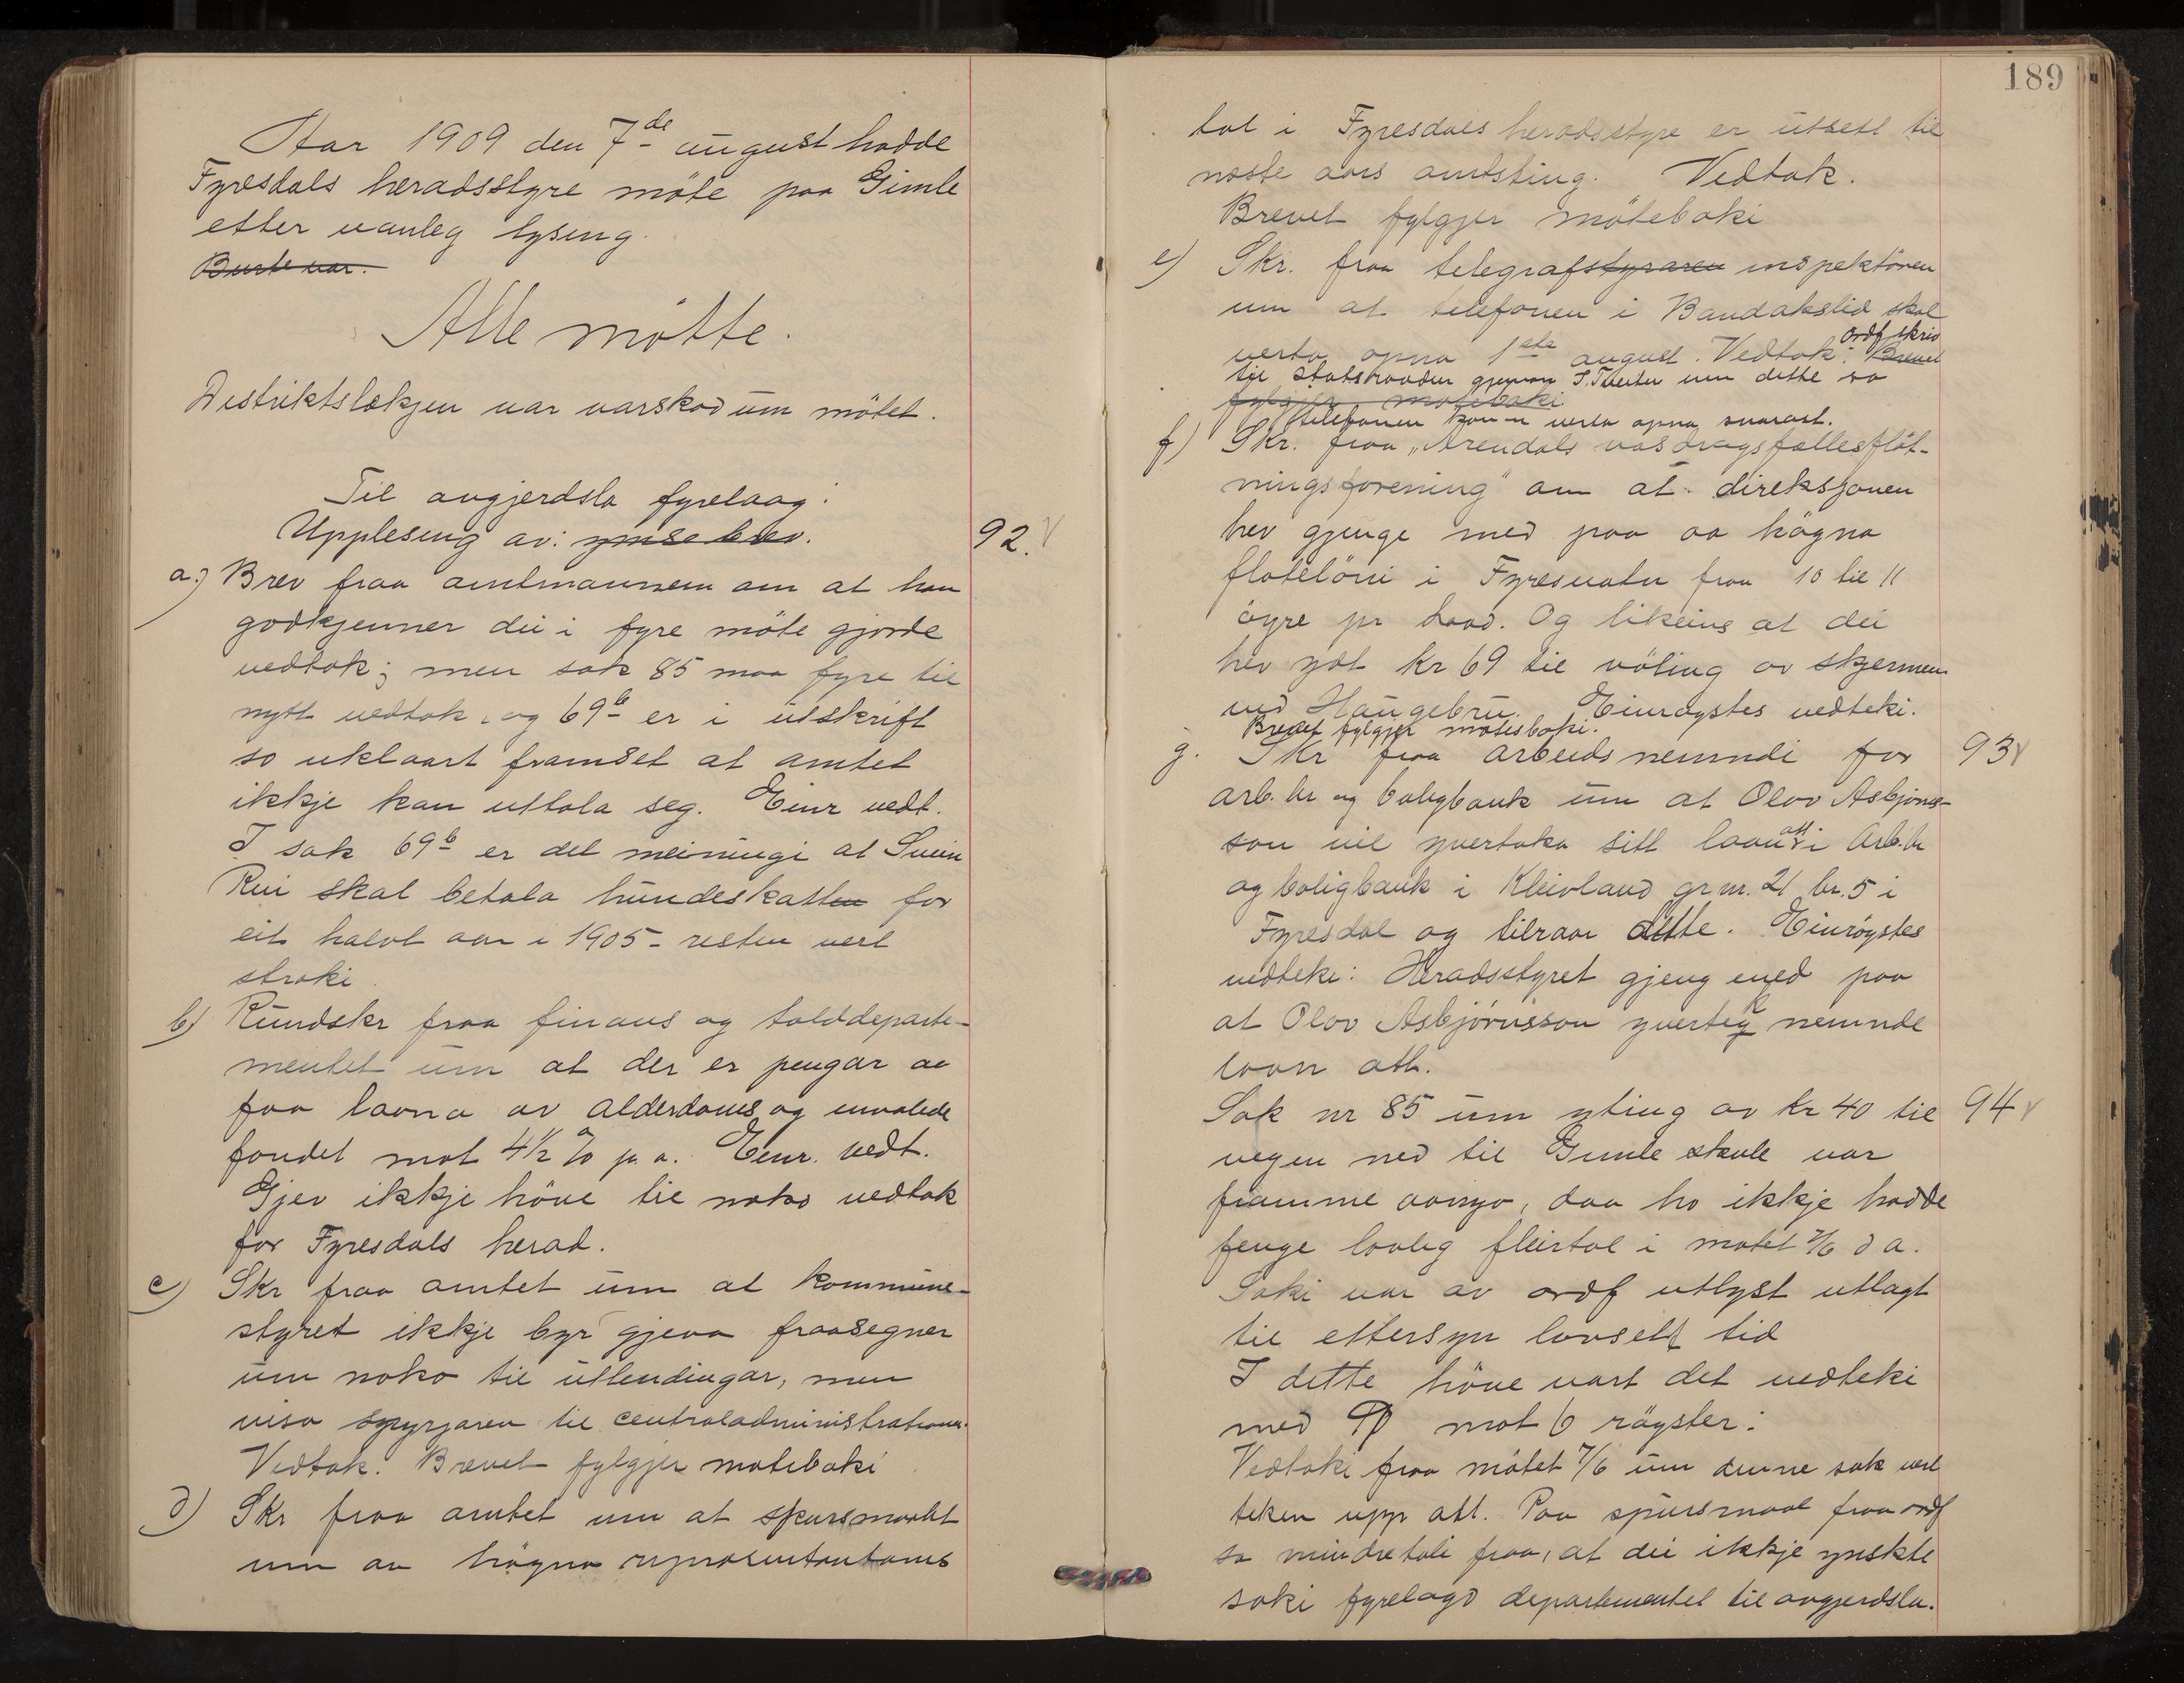 Aar 1909 den 7de august hadde
Fyresdals heradsstyre möte paa Gimle
etter vanleg lysing.
Burte var.
Alle mötte.
Distriktslækjen var varskod um mötet.
Til avgjerdsla fyrelaag:
Upplesing av: ymse brev. 92.
a.) Brev fraa amtmannem om at han
godkjenner dei i fyre möte gjorde
vedtak; men sak 85 maa fyre til
nytt vedtak, og 69b er i utskrift
so uklaart framset at amtet
ikkje kan uttala seg. Einr vedt.
I sak 69b er det meiningi at Svein
Rui skal betala hundeskatten for
eit halvt aar i 1905 - resten vert
stroki.
b) Rundskr fraa finans og tolddeparte-
mentet um at der er pengar aa
faa laana av alderdoms og invalede
fondet mot 4½ % p. a. Einr. vedt.
Gjev ikkje höve til noko vedtak
for Fyresdals herad.
c) Skr fraa amtet um at kommune-
styret ikkje byr gjeva fraasegner
um noko til utlendingar, men
visa spyrjaren til centraladministrationen.
Vedtok. Brevet fylgjer moteboki
d) Skr fraa amtet um at spursmaalet
um aa högna representantants
189
tal i Fyresdals heradsstyre er utsett til
næste aars amtsting. Vedtok.
Brevet fylgjer möteboki
e) Skr. fraa telegrafstyraren inspektören
um at telefonen i Bandakslid skal
ordf skriv
verta opna 1ste august. Vedtok: Brevet
til statsraaden gjenom S. Tveiten um dette so
fylgjer moteboki
telefonen kann verta opna snarast.
f) Skr. fraa "Arendals vasdragsfællesflöt-
ningsforening" om at direksjonen
hev gjenge med paa aa högna
flotelöni i Fyresvatn fraa 10 til 11
öyre pr
Og likeins at dei
hev ydt kr 69 til völing av skjermen
ved Haugebru. Einröystes vedteki.
Brevet fylgjer mötesboki.
g. Skr fraa arbeidsnemndi for 93
arb. br og boligbank um at Olov Asbjörns-
son vil yvertaka sitt laan att i Arb. br
og boligbank i Kleivland gr nr. 21 br. 5 i
Fyresdal og tilraar dette. Einröystes
vedteki: Heradsstyret gjeng med paa
at Olov Asbjörnsson yvertek nemnde
laan att.
Sak nr 85 um yting av kr 40 til 94
vegen ned til Gimle skule var
framme aanyo, daa ho ikkje hadde
fenge lovleg fleirtal i motet 7/6 d a.
Saki var av ordf utlyst utlagt
til ettersyn lovsett tid
I dette höve vart det vedteki
med mot 6 röyster:
Vedtaki fraa mötet 7/6 um denne sak vert
teken upp att. Paa spursmaal fraa ordf
sa mindretali fraa, at dei ikkje ynskte
saki fyrelagd departementet til avgjerdsla.